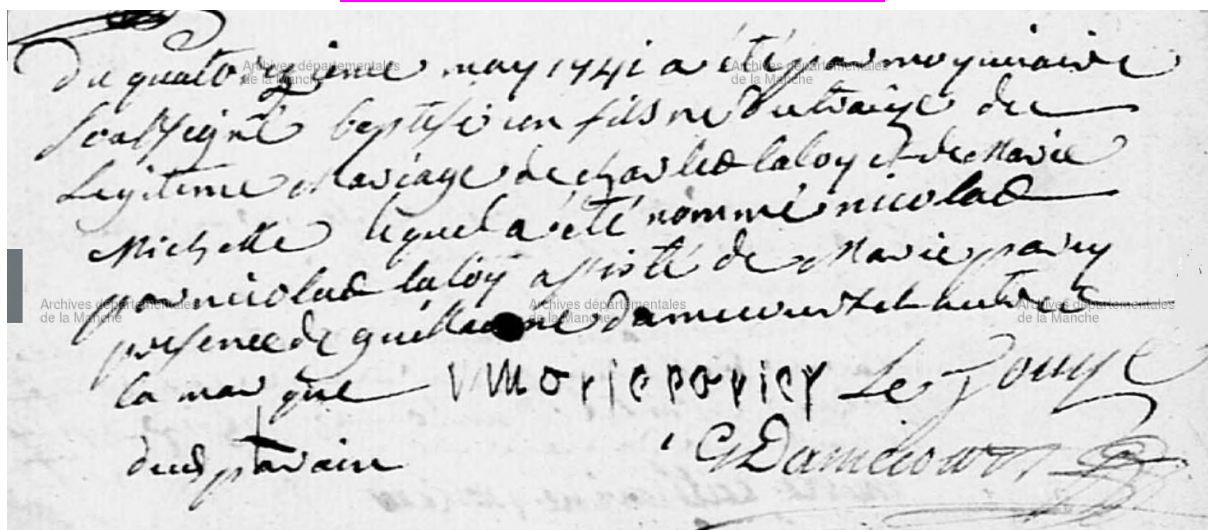 Du quatorzieme may 1741 a été par moy vicaire
soussigné baptisé un fils né du traize de
Legitime Mariage de charles laloy et de Marie
Michelle lequel a été nommé nicolas
par nicolas laloy assisté de Marie paviey
presence de guillaume damecourt et autres
la marque vmorie poviey Le Jouye
dud parain G Damecourt
Archives départementales
de la Manche
Archives départementales
de la Manche
Archives départementales
de la Manche
Archives départementales
de la Manche
Archives départementales
de la Manche